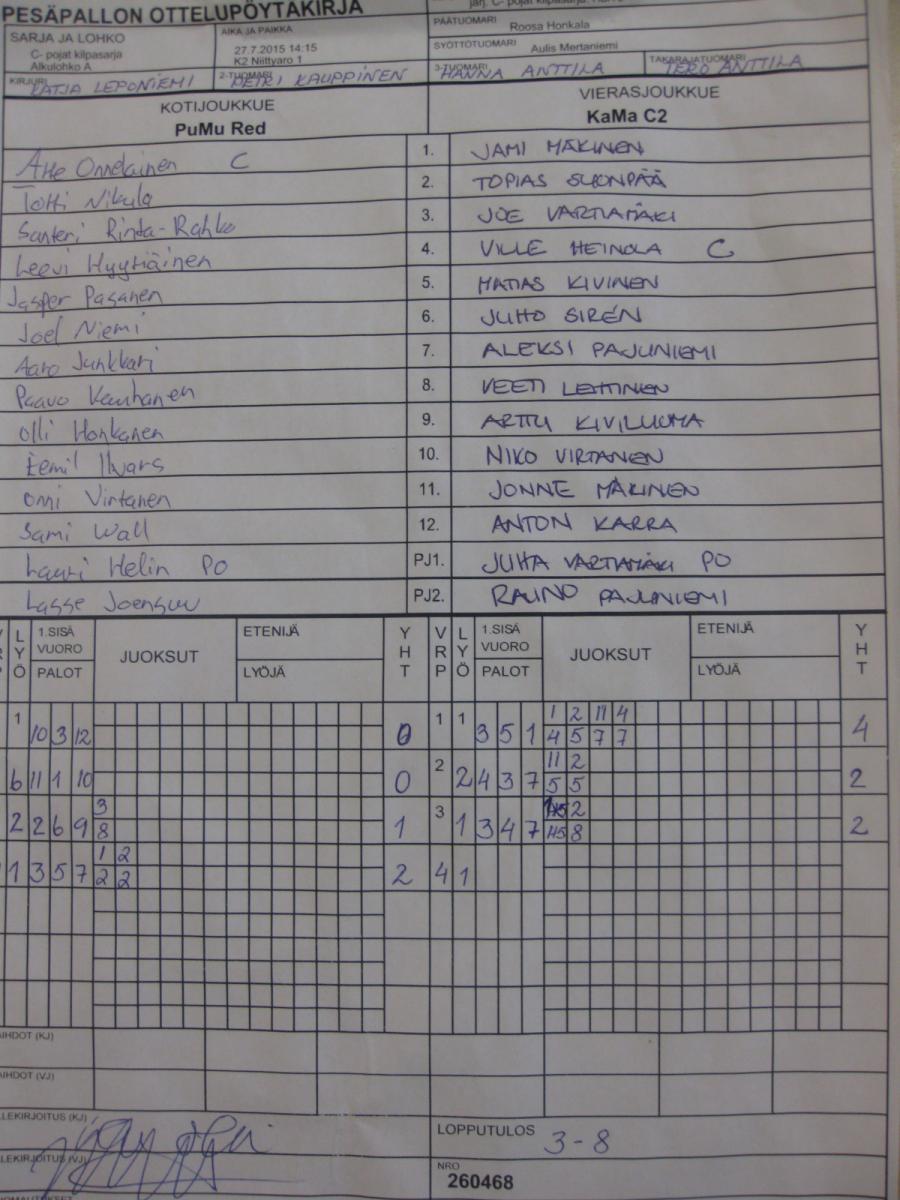 PESÄPALLON OTTELUPÖYTÄKIRJA
SARJA JA LOHKO
C- pojat kilpasarja
Alkulohko A
AIKA JA PAIKKA
27.7.2015 14:15
K2 Niittyaro 1
PÄÄTUOMARI
Roosa Honkala
SYÖTTÖTUOMARI Aulis Mertaniemi
KIRJURI KATJA LEPONIEMI
2-TUOMARI PETRI KAUPPINEN
3-TUOMARI HANNA ANTTILA
TAKARAJATUOMARI TERO ANTTILA
KOTIJOUKKUE
PuMu Red
VIERASJOUKKUE
KaMa C2
Atte Onnelainen C 1. JAMI MÄKINEN
Totti Nikula 2. TOPIAS SUONPÄÄ
Santeri Rinta-Rahko 3. JOE VARTIAMÄKI
Leevi Hyytiäinen 4. VILLE HEINOLA C
Jasper Pasanen 5. MATIAS KIVINEN
Joel Niemi 6. JUHO SIRÉN
Aaro Junkkari 7. ALEKSI PAJUNIEMI
Paavo Kauhanen 8. VEETI LEHTINEN
Olli Honkanen 9. ARTTU KIVILUOMA
Eemil 10. NIKO VIRTANEN
Onni Virtanen 11. JONNE MÄKINEN
Sami Wall 12. ANTON KARRA
Lauri Helin PO PJ1. JUHA VARTIAMÄKI PO
Lasse Joensuu PJ2. RAUNO PAJUNIEMI
LYÖ 1.SISÄ VUORO PALOT JUOKSUT ETENIJÄ LYÖJÄ YHT VRP LYÖ 1.SISÄ VUORO PALOT JUOKSUT ETENIJÄ LYÖJÄ YHT
1 2 11 4
1 10 3 12 0 1 1 3 5 1 4 5 7 7 4
11 2
6 11 1 10 0 2 2 4 3 7 5 5 2
3 2
2 2 6 9 8 1 3 1 3 4 7 8 2
1 2
1 3 5 7 2 2 2 4 1
AIHDOT (KJ)
AIHDOT (VJ)
LEKIRJOITUS (KJ)
LEKIRJOITUS (VJ)
LOPPUTULOS 3-8
NRO
260468